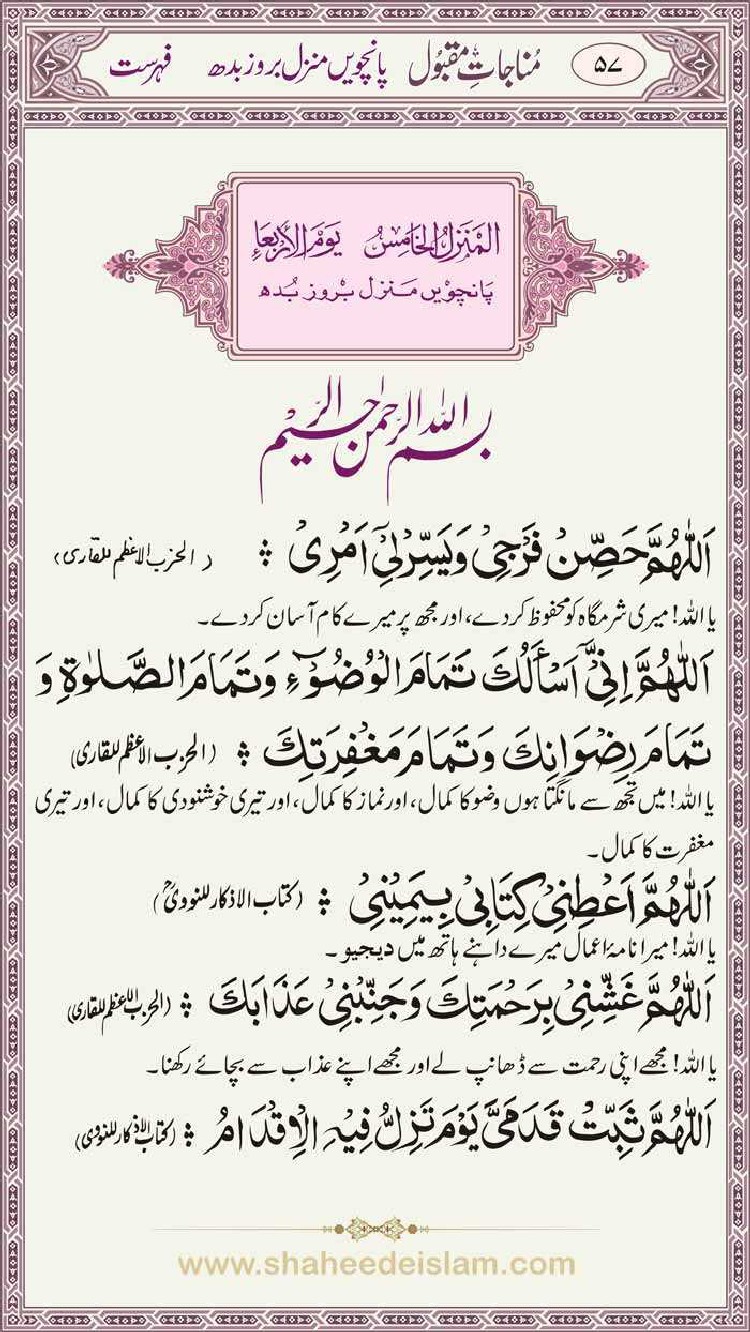 ۵۷ مُناجاتِ مقبُول پانچویں منزل بروز بدھ فہرست
المَنزلُ الخَامِسُ يَوْمَ الْاَرْبِعَاءِ
پانچویں منزل بروز بُدھ
بسم الله الرحمن الرحيم
اَللّٰهُمَّ حَصِّنْ فَرْجِیْ وَيَسِّرْ لِیْٓ اَمْرِیْ (الحزب الاعظم للقاری)
یا اللہ! میری شرمگاہ کو محفوظ کر دے، اور مجھ پر میرے کام آسان کر دے۔
اَللّٰهُمَّ اِنِّیْٓ اَسْأَلُكَ تَمَامَ الْوُضُوْٓءِ وَتَمَامَ الصَّلٰوةِ وَ
تَمَامَ رِضْوَانِكَ وَتَمَامَ مَغْفِرَتِكَ (الحزب الاعظم للقاری)
یا اللہ! میں تجھ سے مانگتا ہوں وضو کا کمال، اور نماز کا کمال، اور تیری خوشنودی کا کمال، اور تیری
مغفرت کا کمال۔
اَللّٰهُمَّ اَعْطِنِیْ كِتَابِیْ بِيَمِيْنِیْ (کتاب الاذکار للنوویؒ)
یا اللہ! میرا نامۂ اعمال میرے داہنے ہاتھ میں دیجیو۔
اَللّٰهُمَّ غَشِّنِیْ بِرَحْمَتِكَ وَجَنِّبْنِیْ عَذَابَكَ (الحزب الاعظم للقاری)
یا اللہ! مجھے اپنی رحمت سے ڈھانپ لے اور مجھے اپنے عذاب سے بچائے رکھنا۔
اَللّٰهُمَّ ثَبِّتْ قَدَمَیَّ يَوْمَ تَزِلُّ فِيْهِ الْاَقْدَامُ (کتاب الاذکار للنووی)
www.shaheedeislam.com